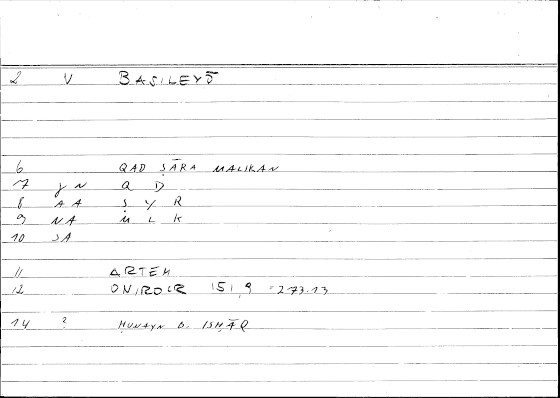 2 V BASILEYŌ
6 QAD ṢĀRA MALIKAN
7 JN Q D
8 AA Ṣ Y R
9 NA M L K
10 SA
11 ARTEM
12 ONIROCR 151,9 = 273.13
14 ? ḤUNAYN B. ISḤĀQ